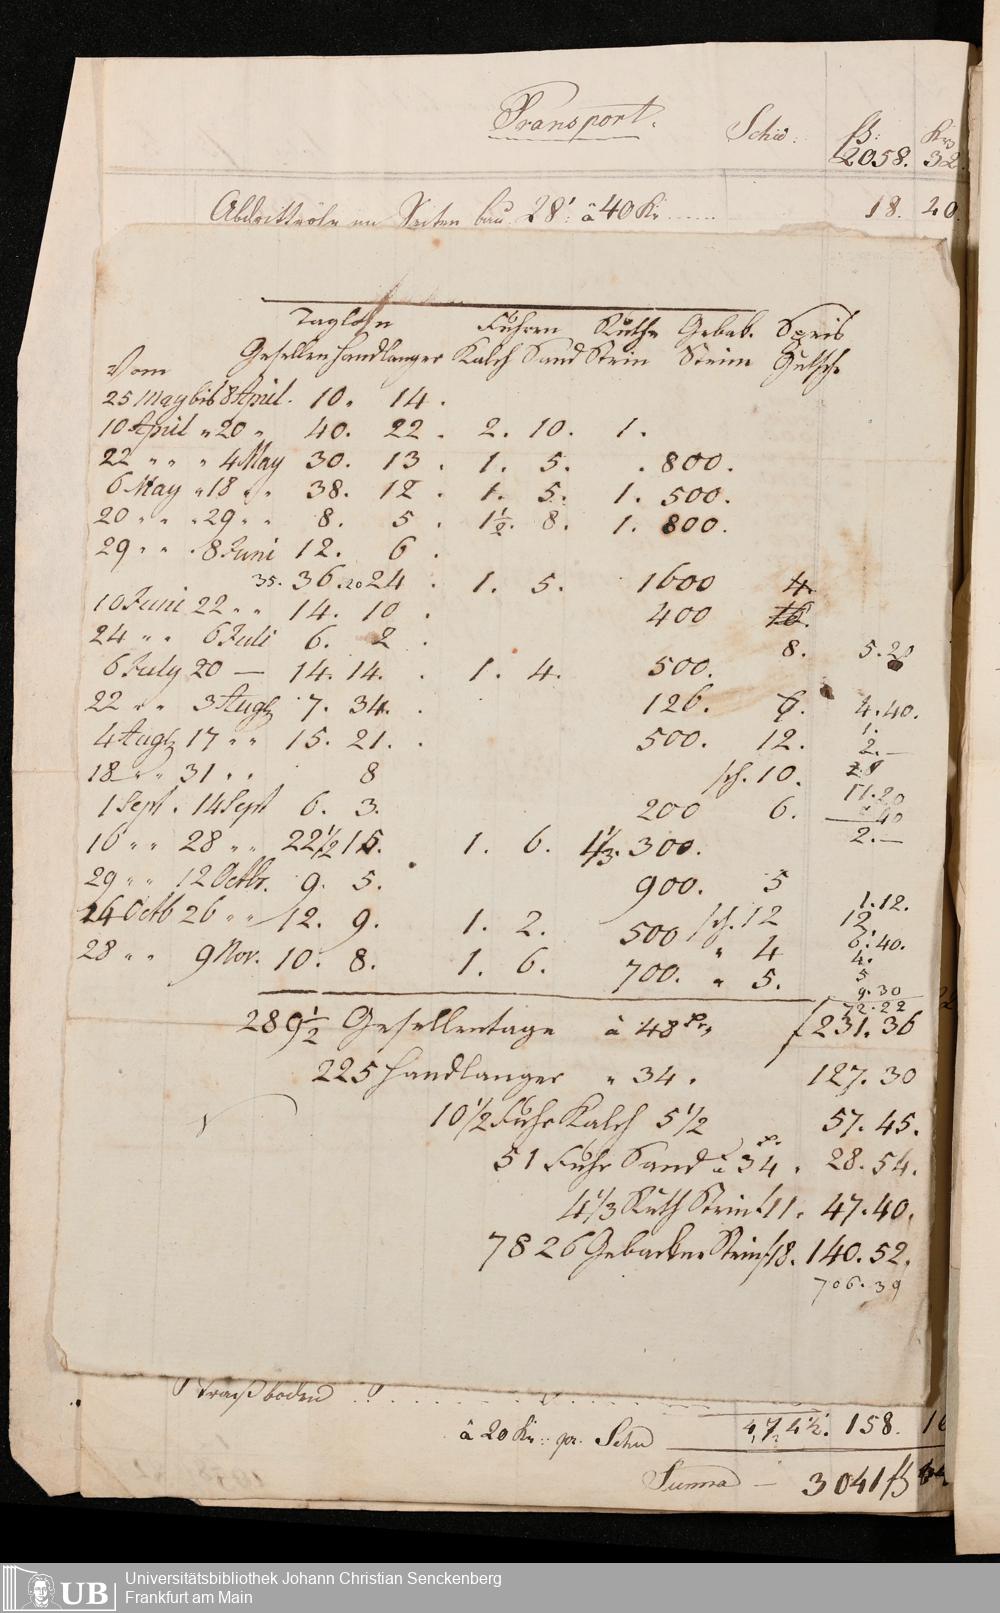 Transport.
Schu: fl: Krz
2058. 32.
Abtrittröhr im Seiten bau 28': â 40 Kr ...... 18. 20.
Taglohn Fuhren Ruthe Gebak. Speis
Vom Gesellen Handlanger Kalch Sand Stein Steine
25 May bis 8 April. 10. 14.
10 April " 20 " 40. 22. 2. 10. 1.
22 " " " 4 May 30. 13. 1. 5. . 800.
6 May " 18 " " 38. 12. 1. 5. 1. 500.
20 " " " 29 " " 8. 5. 1½. 8. 1. 800.
29 " " . 8 Juni 12. 6.
35. 36. 20 24. 1. 5. 1600 4.
10 Juni 22 " " 14. 10. 400
24 " " 6 Juli 6. 2. 8. 5.20
6 July 20 — 14. 14. . 1. 4. 500.
22 " " 3 Augs 7. 34. . 126. 6. 4.40.
4 Augs 17 " " 15. 21. . 500. 12. 1.
2.—
18 " " 31 " " 8 sch. 10.
1 Sept. 14 Sept 6. 3. 200 6. 11.20
16 " " 28 " " 22½ 15. 1. 6. 1⅓. 300. 2.—
29 " " 12 Octbr. 9. 5. 900. 5
Octb 26 " " 12. 9. 1. 2. 500 sch. 12 1.12.
12
28 " " 9 Nov. 10. 8. 1. 6. 700. " 4 6.40.
4.
" 5. 5
9.30
72.22
289½ Gesellentage â 48 Kr. f 231. 36
225 Handlanger " 34. 127. 30
10½ Fuhr Kalch 5½ 57. 45.
51 Fuhr Sand â 34 Kr. 28. 54.
4⅓ Ruth Stein f 11. 47. 40.
7826 Gebackne Stein f 18. 140. 52.
706. 39
Straßboden . . . . . . . .
â 20 Kr: pr. Schu 474½. 158. 10
Summa — 3041 fl
UB Universitätsbibliothek Johann Christian Senckenberg
Frankfurt am Main